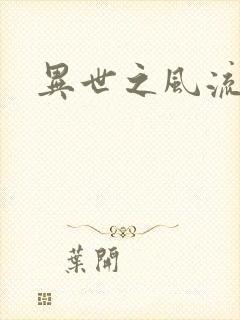 異世之風流
葉開